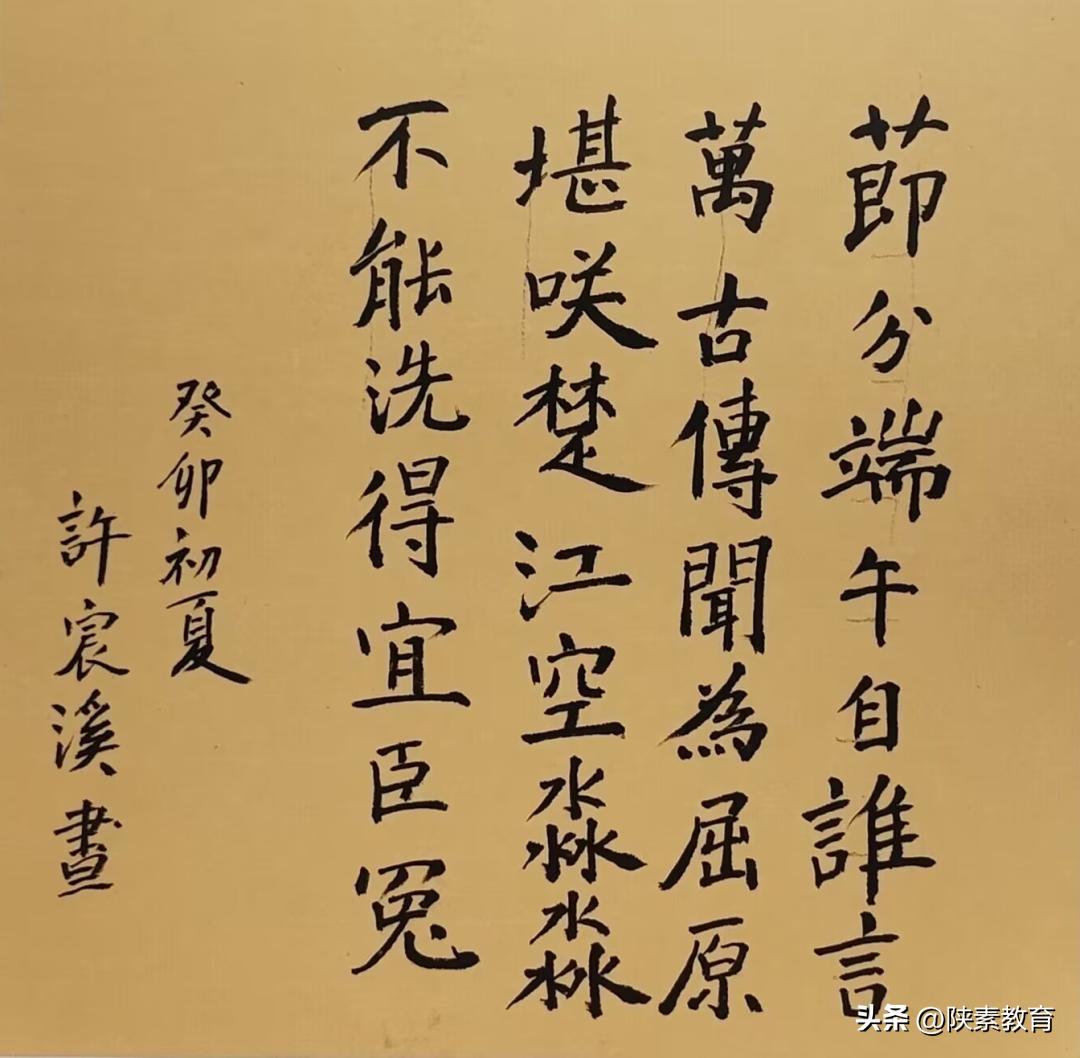 節分端午自誰言
萬古傳聞為屈原
堪咲楚江空淼淼
不能洗得宜臣冤
癸卯初夏
許宸溪書
头条 @陕素教育